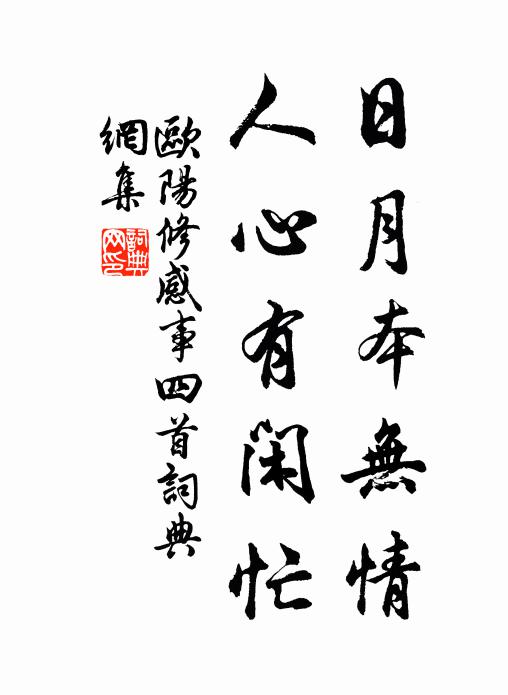 日月本無情
人心有閑忙
歐陽修感事四首詞典
網集
詞典网印